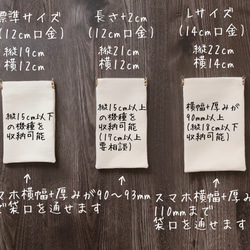 標準サイズ
(12cm口金)
縦19cm
横12cm
縦15cm以下
の機種を
収納可能
長さ+2cm
(12cm口金)
縦21cm
横12cm
縦15cm以上
の機種を
収納可能
(17cm以上
要相談)
Lサイズ
(14cm口金)
縦22cm
横14cm
横幅+厚みが
90mm以上
(縦18cm以下
収納可能)
スマホ横幅+厚みが90〜93mm
で袋口を通せます
スマホ横幅+厚みが
110mmまで
袋口を通せます